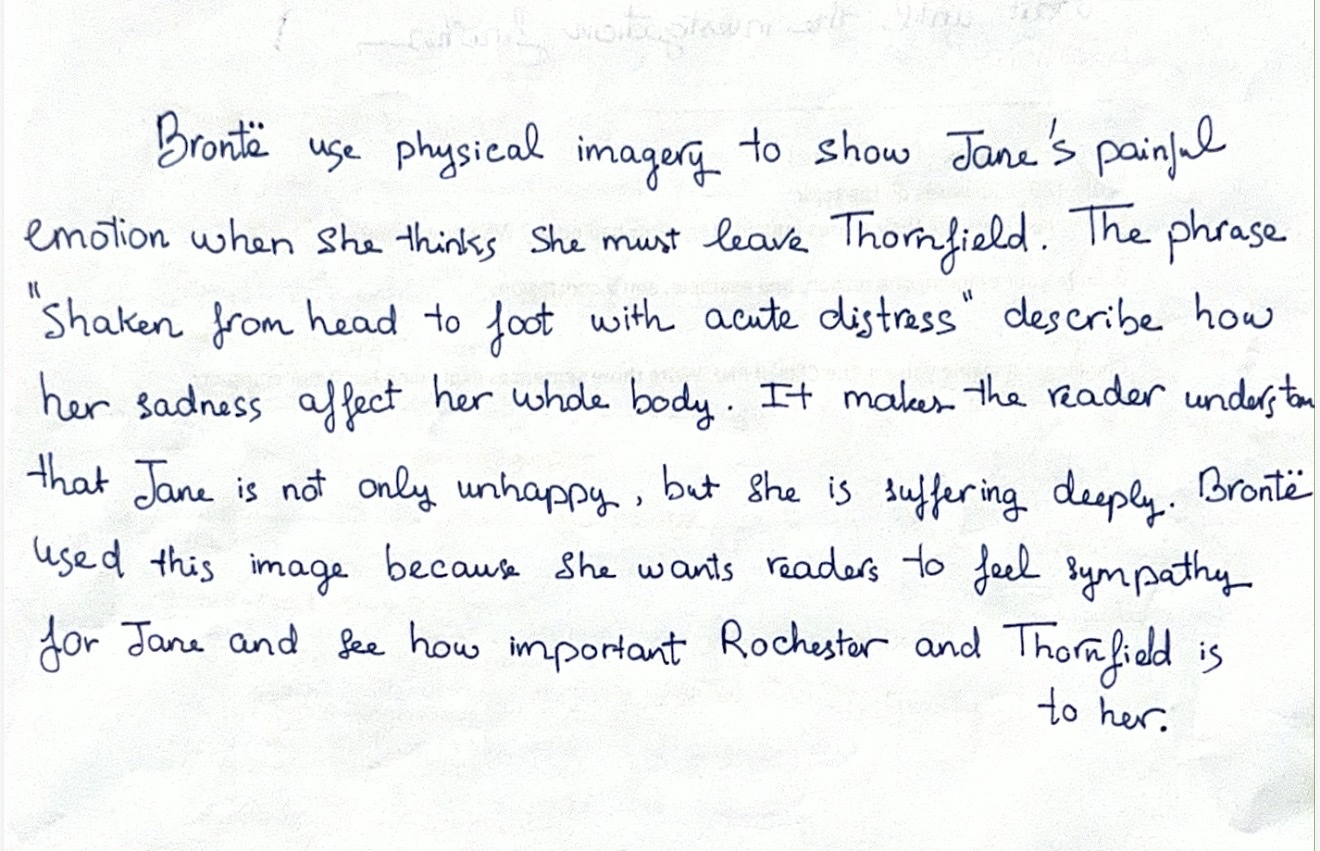 Brontë use physical imagery to show Jane's painful
emotion when she thinks she must leave Thornfield. The phrase
"Shaken from head to foot with acute distress" describe how
her sadness affect her whole body. It makes the reader
that Jane is not only unhappy, but she is suffering deeply. Brontë
used this image because she wants readers to feel sympathy
for Jane and see how important Rochester and Thornfield is
to her.